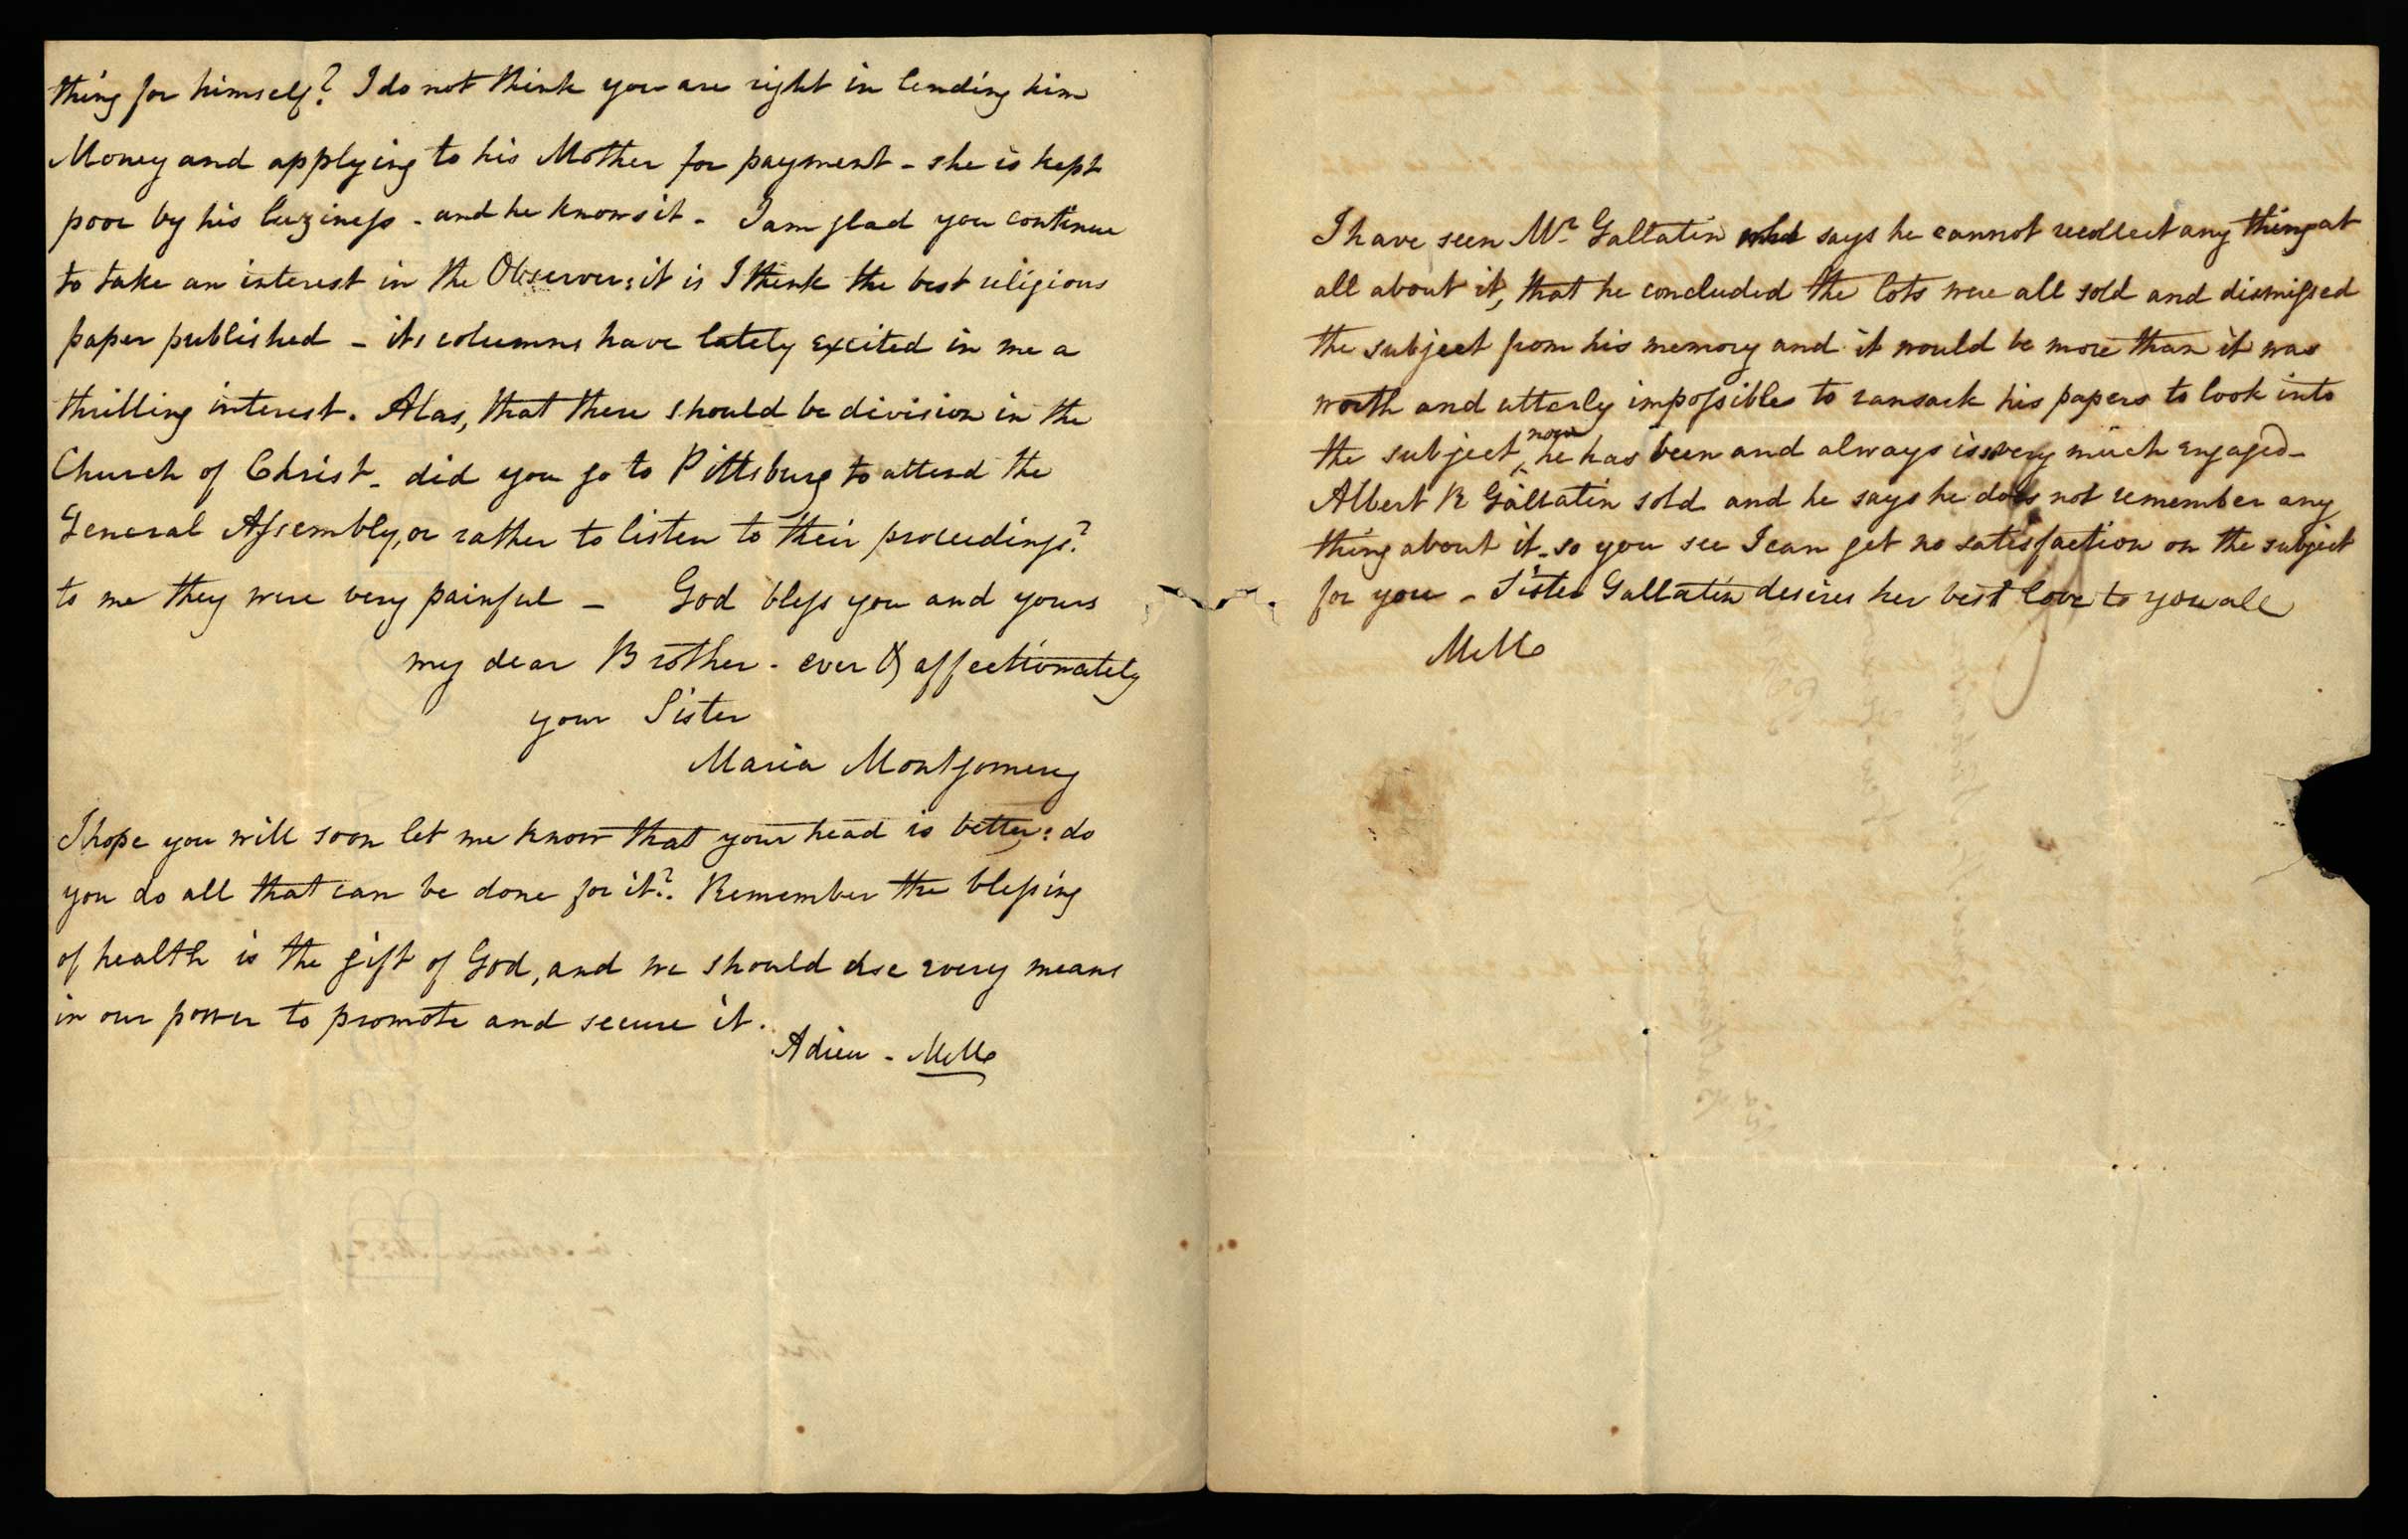 thing for himself? I do not think you are right in lending him
Money and applying to his Mother for payment - she is kept
poor by his laziness - and he knows it - I am glad you continue
to take an interest in the Observer: it is I think the best religious
paper published - its columns have lately excited in me a
thrilling interest. Alas, that there should be division in the
Church of Christ - did you go to Pittsburg to attend the
General Assembly, or rather to listen to their proceedings?
to me they were very painful - God bless you and yours
my dear Brother - ever & affectionately
your Sister
Maria Montgomery
I hope you will soon let me know that your head is better: do
you do all that can be done for it? Remember the blessing
of health is the gift of God, and we should use every means
in our power to promote and secure it.
Adieu - MM
I have seen Mr. Gallatin who says he cannot recollect any thing at
all about it, that he concluded the lots were all sold and dismissed
the subject from his memory and it would be more than it was
worth and utterly impossible to ransack his papers to look into
the subject now he has been and always is very much engaged -
Albert R Gallatin sold and he says he does not remember any
thing about it - so you see I can get no satisfaction on the subject
for you - Sister Gallatin desires her best love to you all
MM